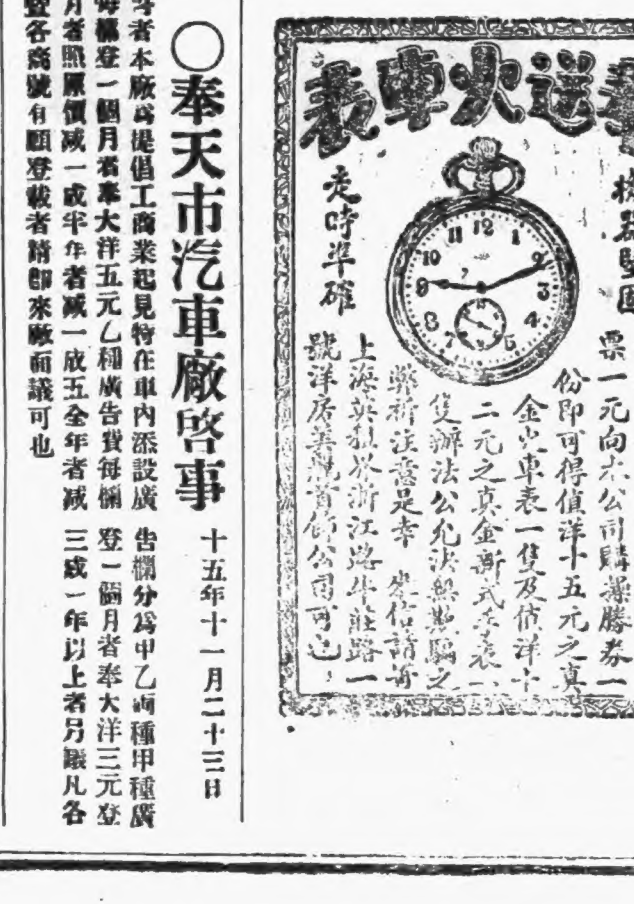 送火車表
機器堅固
走時準確
12
1
2
3
4
5
7
8
9
10
11
票一元向本公司購操勝券一
份即可得值洋十五元之真
金火車表一隻及值洋十
二元之真金新式手表一
隻辦法公允決無欺騙之
弊祈注意是幸 來信請寄
上海英租界浙江路牛莊路一
號洋房首飾公司可也
○奉天市汽車廠啓事 十五年十一月二十三日
者本廠爲提倡工商業起見特在車內添設廣告欄分爲甲乙兩種甲種廣
每欄登一個月者奉大洋五元乙種廣告費每欄登一個月者奉大洋三元登
月者照原價减一成半年者减一成五全年者减三成一年以上者另議凡各
暨各商號有願登載者請即來廠面議可也